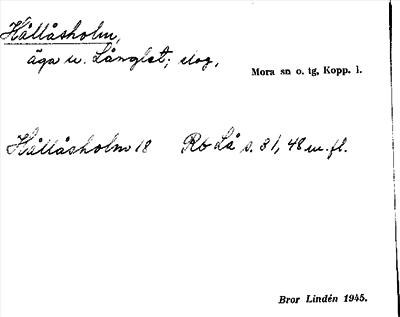 Hållåsholm,
äga u. Långlet; skog,
Mora sn o. tg, Kopp. l.
Hållåsholm 18 Rb Lå s. 31, 48 m. fl.
Bror Lindén 1945.